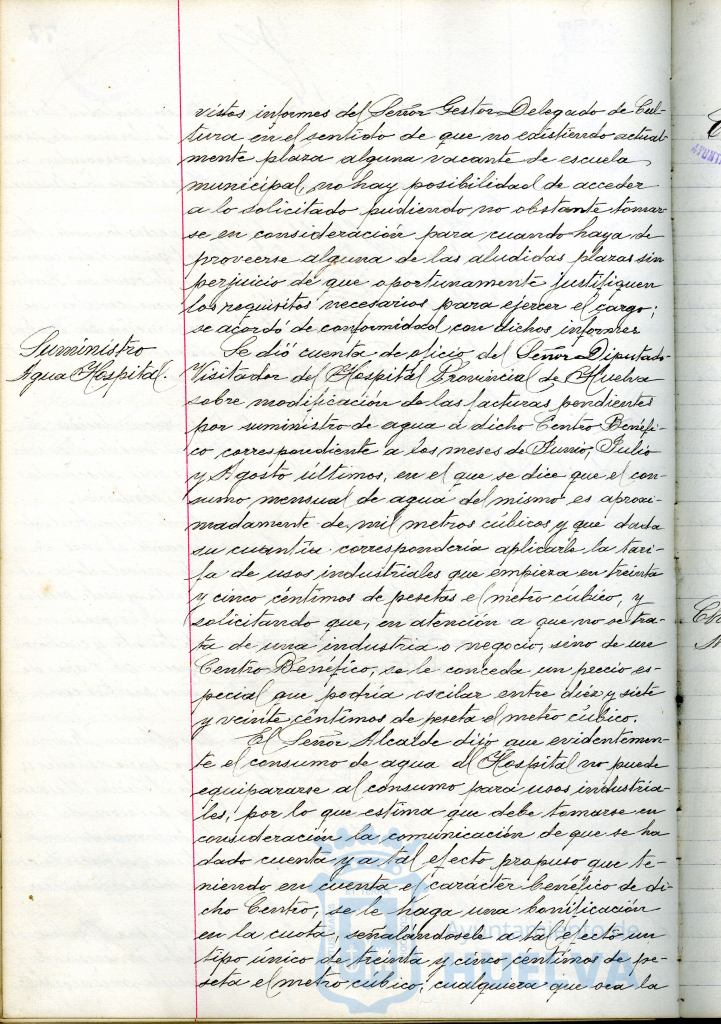 vistos informes del Señor Gestor Delegado de Cul-
tura en el sentido de que no existiendo actual-
mente plaza alguna vacante de escuela
municipal, no hay posibilidad de acceder
a lo solicitado pudiendo no obstante tomar-
se en consideración para cuando haya de
proveerse alguna de las aludidas plazas sin
perjuicio de que oportunamente justifiquen
los requisitos necesarios para ejercer el cargo;
se acordó de conformidad con dichos informes
Suministro
Agua Hospital.
Se dió cuenta de oficio del Señor Diputado
Visitador del Hospital Provincial de Huelva
sobre modificación de las facturas pendientes
por suministro de agua a dicho Centro Benéfi-
co correspondiente a los meses de Junio, Julio
y Agosto últimos, en el que se dice que el con-
sumo mensual de agua del mismo es aproxi-
madamente de mil metros cúbicos y que dada
su cuantía correspondería aplicarle la tari-
fa de usos industriales que empieza en treinta
y cinco céntimos de pesetas el metro cúbico, y
solicitando que, en atención a que no se tra-
ta de una industria o negocio, sino de un
Centro Benéfico, se le conceda un precio es-
pecial que podría oscilar entre diez y siete
y veinte céntimos de peseta el metro cúbico.
El Señor Alcalde dijo que evidentemen-
te el consumo de agua del Hospital no puede
equipararse al consumo para usos industria-
les, por lo que estima que debe tomarse en
consideración la comunicación de que se ha
dado cuenta y a tal efecto propuso que te-
niendo en cuenta el carácter benéfico de di-
cho Centro, se le haga una bonificación
en la cuota, señalándosele a tal efecto un
tipo único de treinta y cinco céntimos de pe-
seta el metro cúbico, cualquiera que sea la
Ayuntamiento de
HUELVA